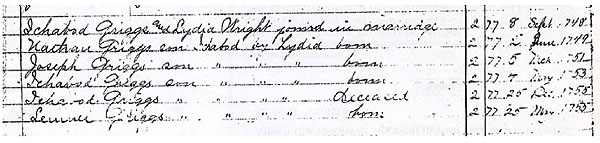 Ichabod Griggs and Lydia Wright joined in marriage 2 77. 8 Sept. 1748.
Nathan Griggs son Ichabod by Lydia born 2 77. 2 June. 1749
Joseph Griggs son " " " born 2 77. 5 51
Ichabod Griggs son " " " born 2 77. 7 53
Ichabod Griggs " " " " deceased 2 77. 25 Dec. 1755
Griggs " " " " born 2 77. 25 1755